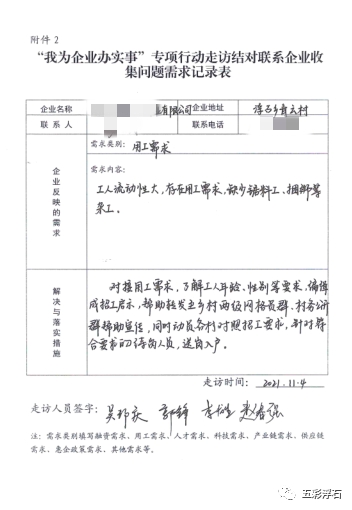 附件 2
“我为企业办实事”专项行动走访结对联系企业收
集问题需求记录表
企业名称 有限公司 企业地址 浮石乡 村
联系人 联系电话
企业反映的需求
需求类别：用工需求
需求内容：
工人流动性大，存在用工需求，缺少锯料工、捆绑等
杂工。
解决与落实措施
对接用工需求，了解工人年龄、性别等要求，编辑
成招工启示，帮助转发至乡村两级网格员群、村务公开
群帮助宣传，同时动员各村对照招工要求，针对符
合要求的待岗人员，送岗入户。
走访时间：2021.11.4
走访人员签字：
注：需求类别填写融资需求、用工需求、人才需求、科技需求、产业链需求、供应链
需求、惠企政策需求、其他需求等。
五彩浮石